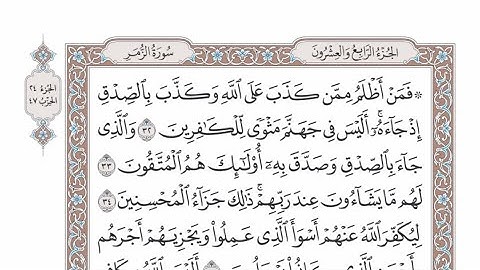 الجزء الرابع والعشرون
سورة الزمر
الجزء ٢٤
الحزب ٤٧
۞ فَمَنْ أَظْلَمُ مِمَّن كَذَبَ عَلَى ٱللَّهِ وَكَذَّبَ بِٱلصِّدْقِ
إِذْ جَآءَهُۥٓ ۚ أَلَيْسَ فِى جَهَنَّمَ مَثْوًى لِّلْكَـٰفِرِينَ ٣٢ وَٱلَّذِى
جَآءَ بِٱلصِّدْقِ وَصَدَّقَ بِهِۦٓ ۙ أُو۟لَـٰٓئِكَ هُمُ ٱلْمُتَّقُونَ ٣٣
لَهُم مَّا يَشَآءُونَ عِندَ رَبِّهِمْ ۚ ذَٰلِكَ جَزَآءُ ٱلْمُحْسِنِينَ ٣٤
لِيُكَفِّرَ ٱللَّهُ عَنْهُمْ أَسْوَأَ ٱلَّذِى عَمِلُوا۟ وَيَجْزِيَهُمْ أَجْرَهُم